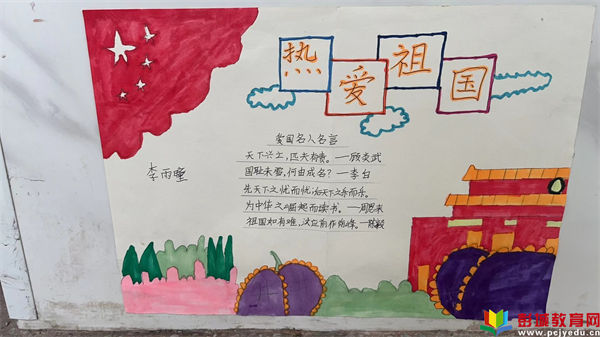 热爱祖国
李雨瞳
爱国名人名言
天下兴亡,匹夫有责。—顾炎武
国耻未雪,何由成名?—李白
先天下之忧而忧,后天下之乐而乐。
为中华之崛起而读书。—周恩来
祖国如有难,汝应前作先锋。—陈毅
彭城教育网
www.pcjyedu.cn